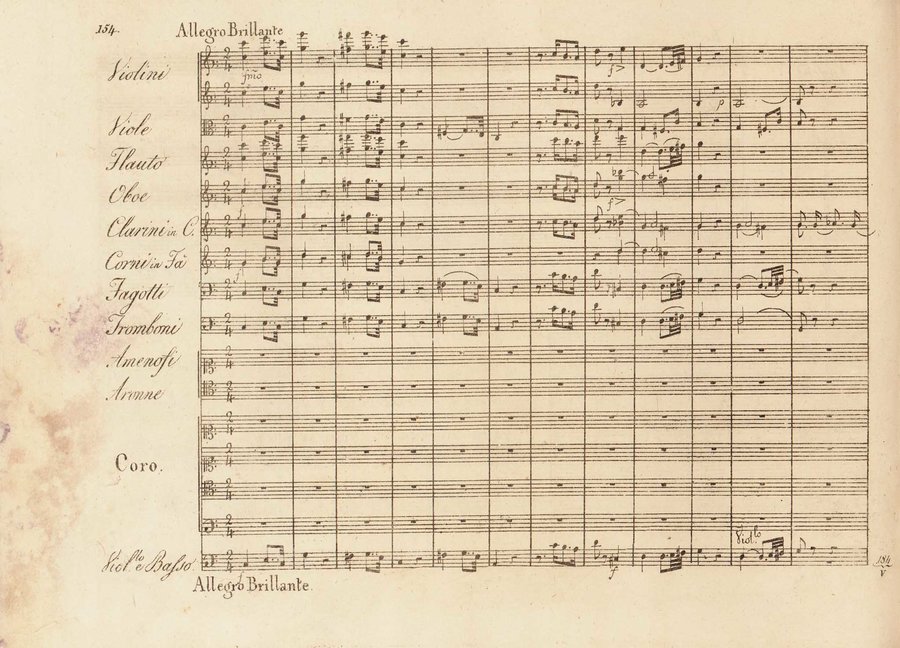 154.
Allegro Brillante
Violini
fmo
Viole
Flauto
Oboe
Clarini in C.
Corni in Fà
Fagotti
Tromboni
Amenofi
Aronne
Coro.
Viol.lo e Basso
Viol.lo
Allegro Brillante.
184
V